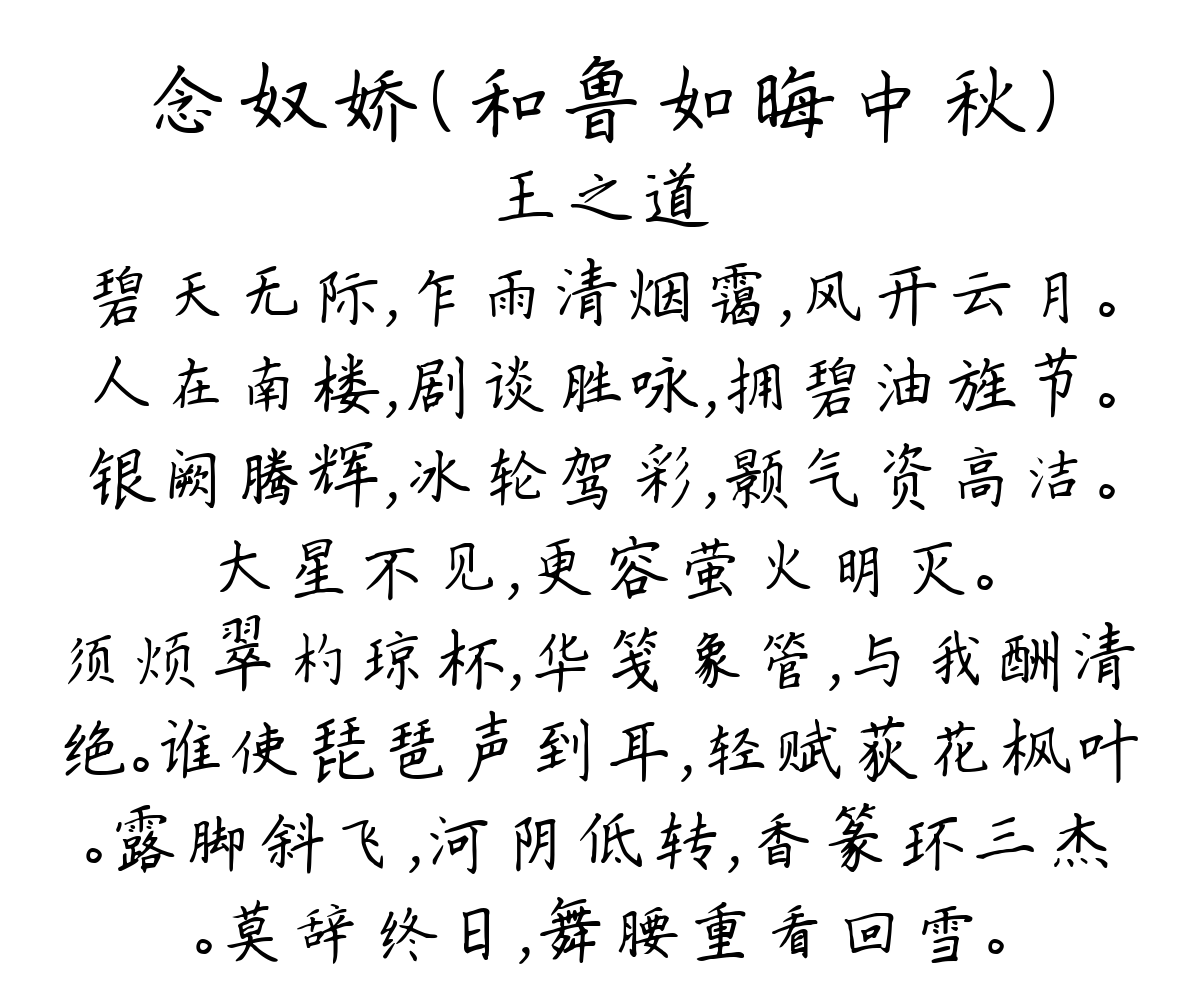 念奴娇(和鲁如晦中秋)
王之道
碧天无际,乍雨清烟霭,风开云月。
人在南楼,剧谈胜咏,拥碧油旌节。
银阙腾辉,冰轮驾彩,颢气资高洁。
大星不见,更容萤火明灭。
须烦翠杓琼杯,华笺象管,与我酬清
绝。谁使琵琶声到耳,轻赋荻花枫叶
。露脚斜飞,河阴低转,香篆环三杰
。莫辞终日,舞腰重看回雪。